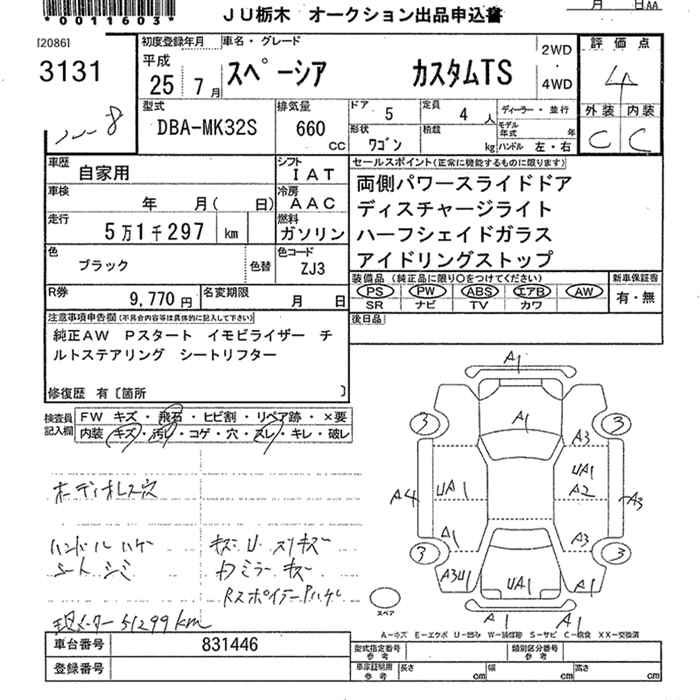 *0011603*
JU栃木 オークション出品申込書
月 日AA
[2086]
3131
初度登録年月 車名・グレード
平成 25 7月
スペーシア カスタムTS
2WD ・ 4WD
評価点
4
外装 内装
C C
型式 DBA-MK32S
排気量 660 CC
ドア 5
定員 4 人
ディーラー・並行
形状 ワゴン
積載 kg
モデル年式 年
ハンドル 左・右
車歴 自家用
シフト IAT
車検 年 月( 日)
冷房 AAC
走行 5万1千297 km
燃料 ガソリン
色 ブラック 色替
色コード ZJ3
R券 9,770円
名変期限 月 日
セールスポイント(正常に機能するものに限ります)
両側パワースライドドア
ディスチャージライト
ハーフシェイドガラス
アイドリングストップ
装備品 (純正品に限り○をつけてください) 新車保証書
PS PW ABS エアB AW 有・無
SR ナビ TV カワ
後日品
注意事項申告欄(不具合内容等は具体的に記入して下さい)
純正AW Pスタート イモビライザー チ
ルトステアリング シートリフター
修復歴 有〔箇所 〕
検査員記入欄
FW キズ・飛石・ヒビ割・リペア跡・×要
内装・キズ・汚れ・コゲ・穴・スレ・キレ・破レ
オーディオレス穴
ハンドルハゲ キズU スリキズ
シートシミ Fミラーキズ
RスポイラーPハゲ
現メーター51299km
A1
A1
3 3
A3
UA1 UA1
A4 A2 A3
A1 A3
3 3
A3U1 UA1 A1
A1 A1
スペア
A-キズ E-エクボ U-凹み W-補修跡 S-サビ C-腐食 XX-交換済
車台番号 831446
登録番号
型式指定番号 参考 類別区分番号 参考
車庫証明用 参考 長さ cm 幅 cm 高さ cm